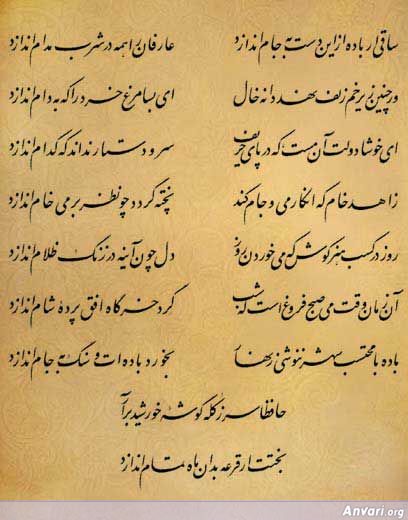 ساقی ار باده از این دست به جام اندازد عارفان را همه در شرب مدام اندازد
ور چنین زیر خم زلف نهد دانه خال ای بسا مرغ خرد را که به دام اندازد
ای خوشا دولت آن مست که در پای حریف سر و دستار نداند که کدام اندازد
زاهد خام که انکار می و جام کند پخته گردد چو نظر بر می خام اندازد
روز در کسب هنر کوش که می خوردن روز دل چون آینه در زنگ ظلام اندازد
آن زمان وقت می صبح فروغ است که شب گرد خرگاه افق پرده شام اندازد
باده با محتسب شهر ننوشی زنهار بخورد باده ات و سنگ به جام اندازد
حافظا سر ز کله گوشه خورشید برآر
بختت ار قرعه بدان ماه تمام اندازد
Anvari.org